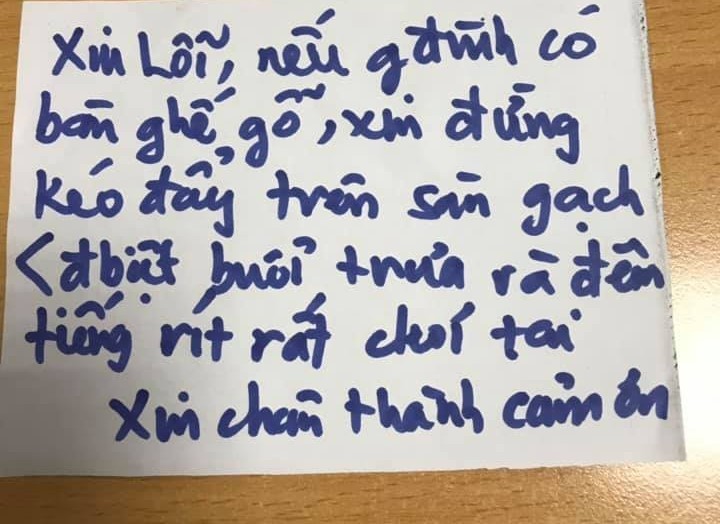 Xin Lỗi, nếu gđình có
bàn ghế, gỗ, xin đừng
kéo đẩy trên sàn gạch
<đbiệt buổi trưa và đêm
tiếng rít rất chói tai
Xin chân thành cảm ơn